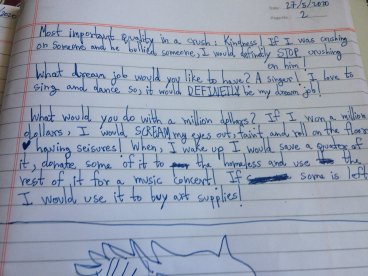 Date: 27/5/2020
Page No: 2
Most important quality in a crush: Kindness. If I was crushing
on someone and he bullied someone, I would definely STOP crushing
on him!
What dream job would you like to have? A singer! I love to
sing and dance so, it would DEFINELLY be my dream job!
What would you do with a million dollars? If I won a million
dollars, I would SCREAM my eyes out, faint, and roll on the floor
having seisures! When, I wake up I would save a quater of
it, donate some of it to the homeless and use the
rest of it for a music concert! If some is left
I would use it to buy art supplies!